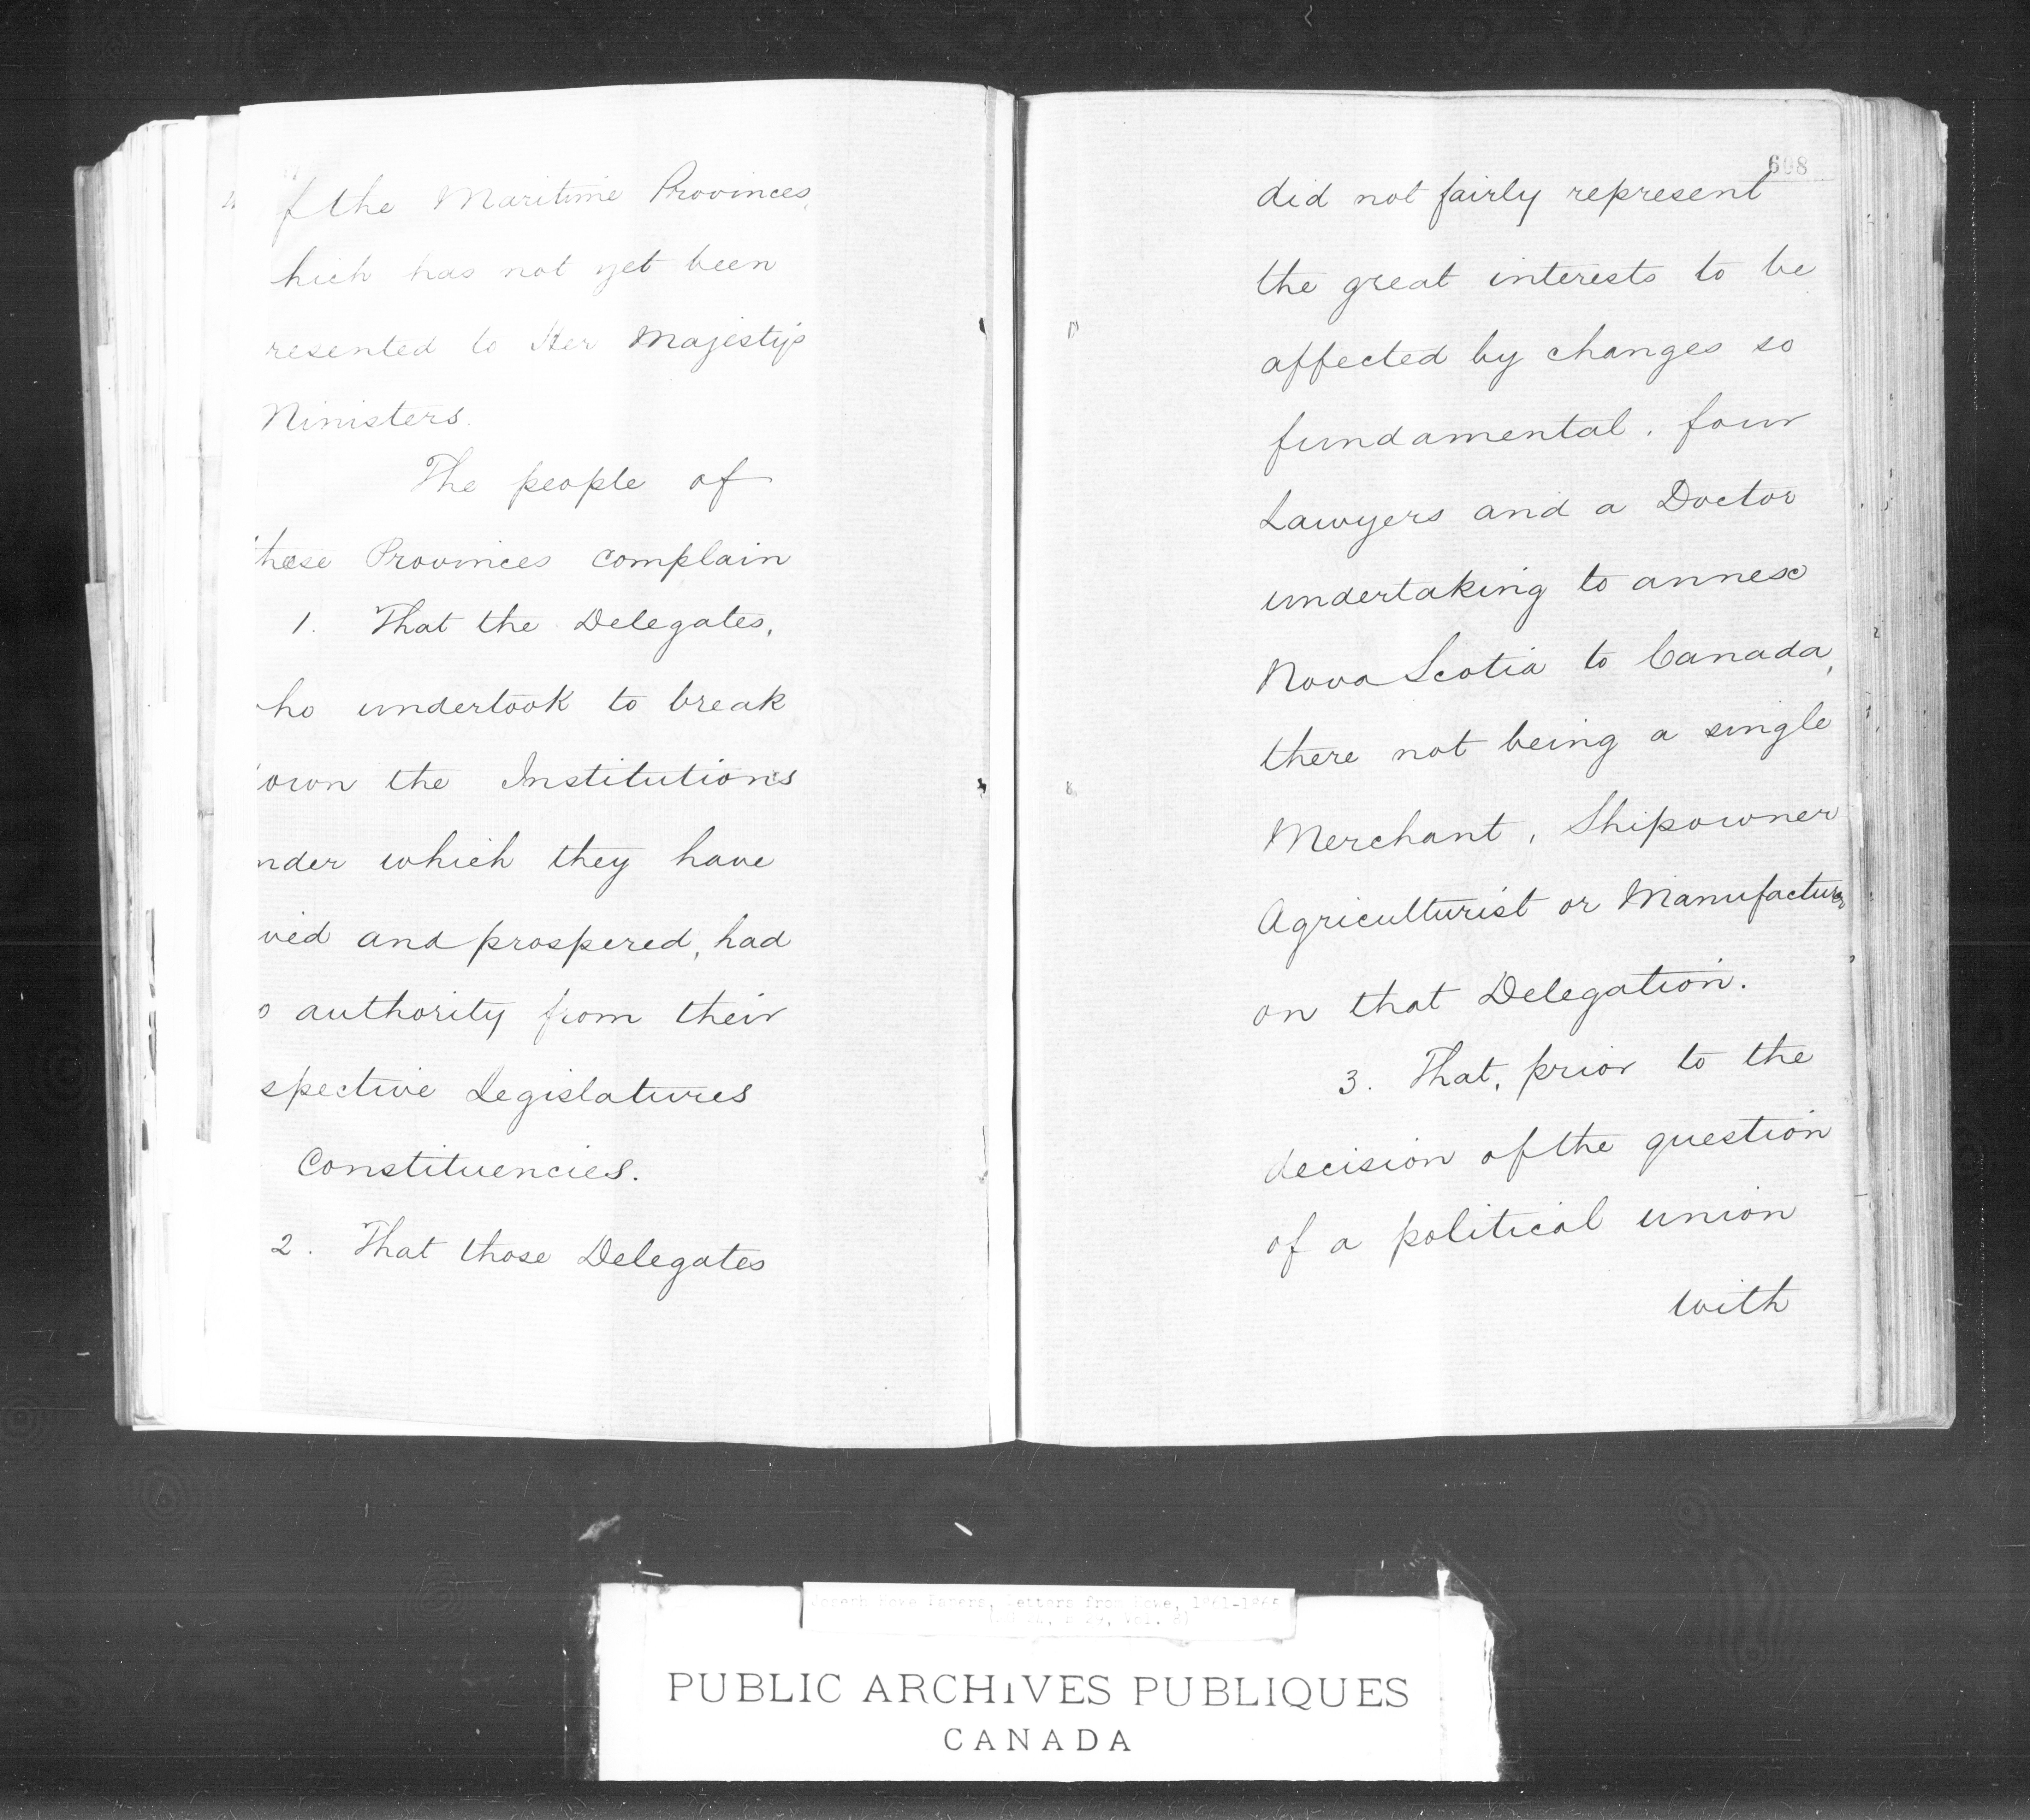 f the Maritime Provinces,
hich has not yet been
resented to Her Majesty's
Ministers.
The people of
these Provinces complain
1. That the Delegates,
ho undertook to break
own the Institutions
nder which they have
ved and prospered, had
o authority from their
spective Legislatures
Constituencies.
2. That those Delegates
608
did not fairly represent
the great interests to be
affected by changes so
fundamental, four
Lawyers and a Doctor
undertaking to annex
Nova Scotia to Canada,
there not being a single
Merchant, Shipowner
Agriculturist or Manufacturer
on that Delegation.
3. That, prior to the
decision of the question
of a political union
with
Joseph Howe Papers, Letters from Howe, 1861-1865
PUBLIC ARCHIVES PUBLIQUES
CANADA